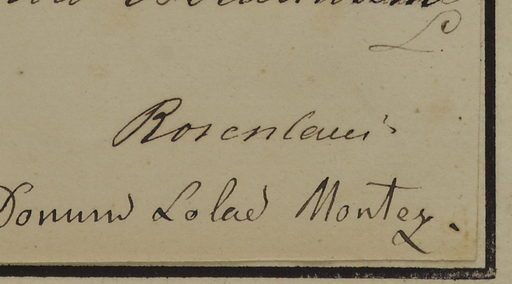 Rosenlaui
Donum Lolae Montez.